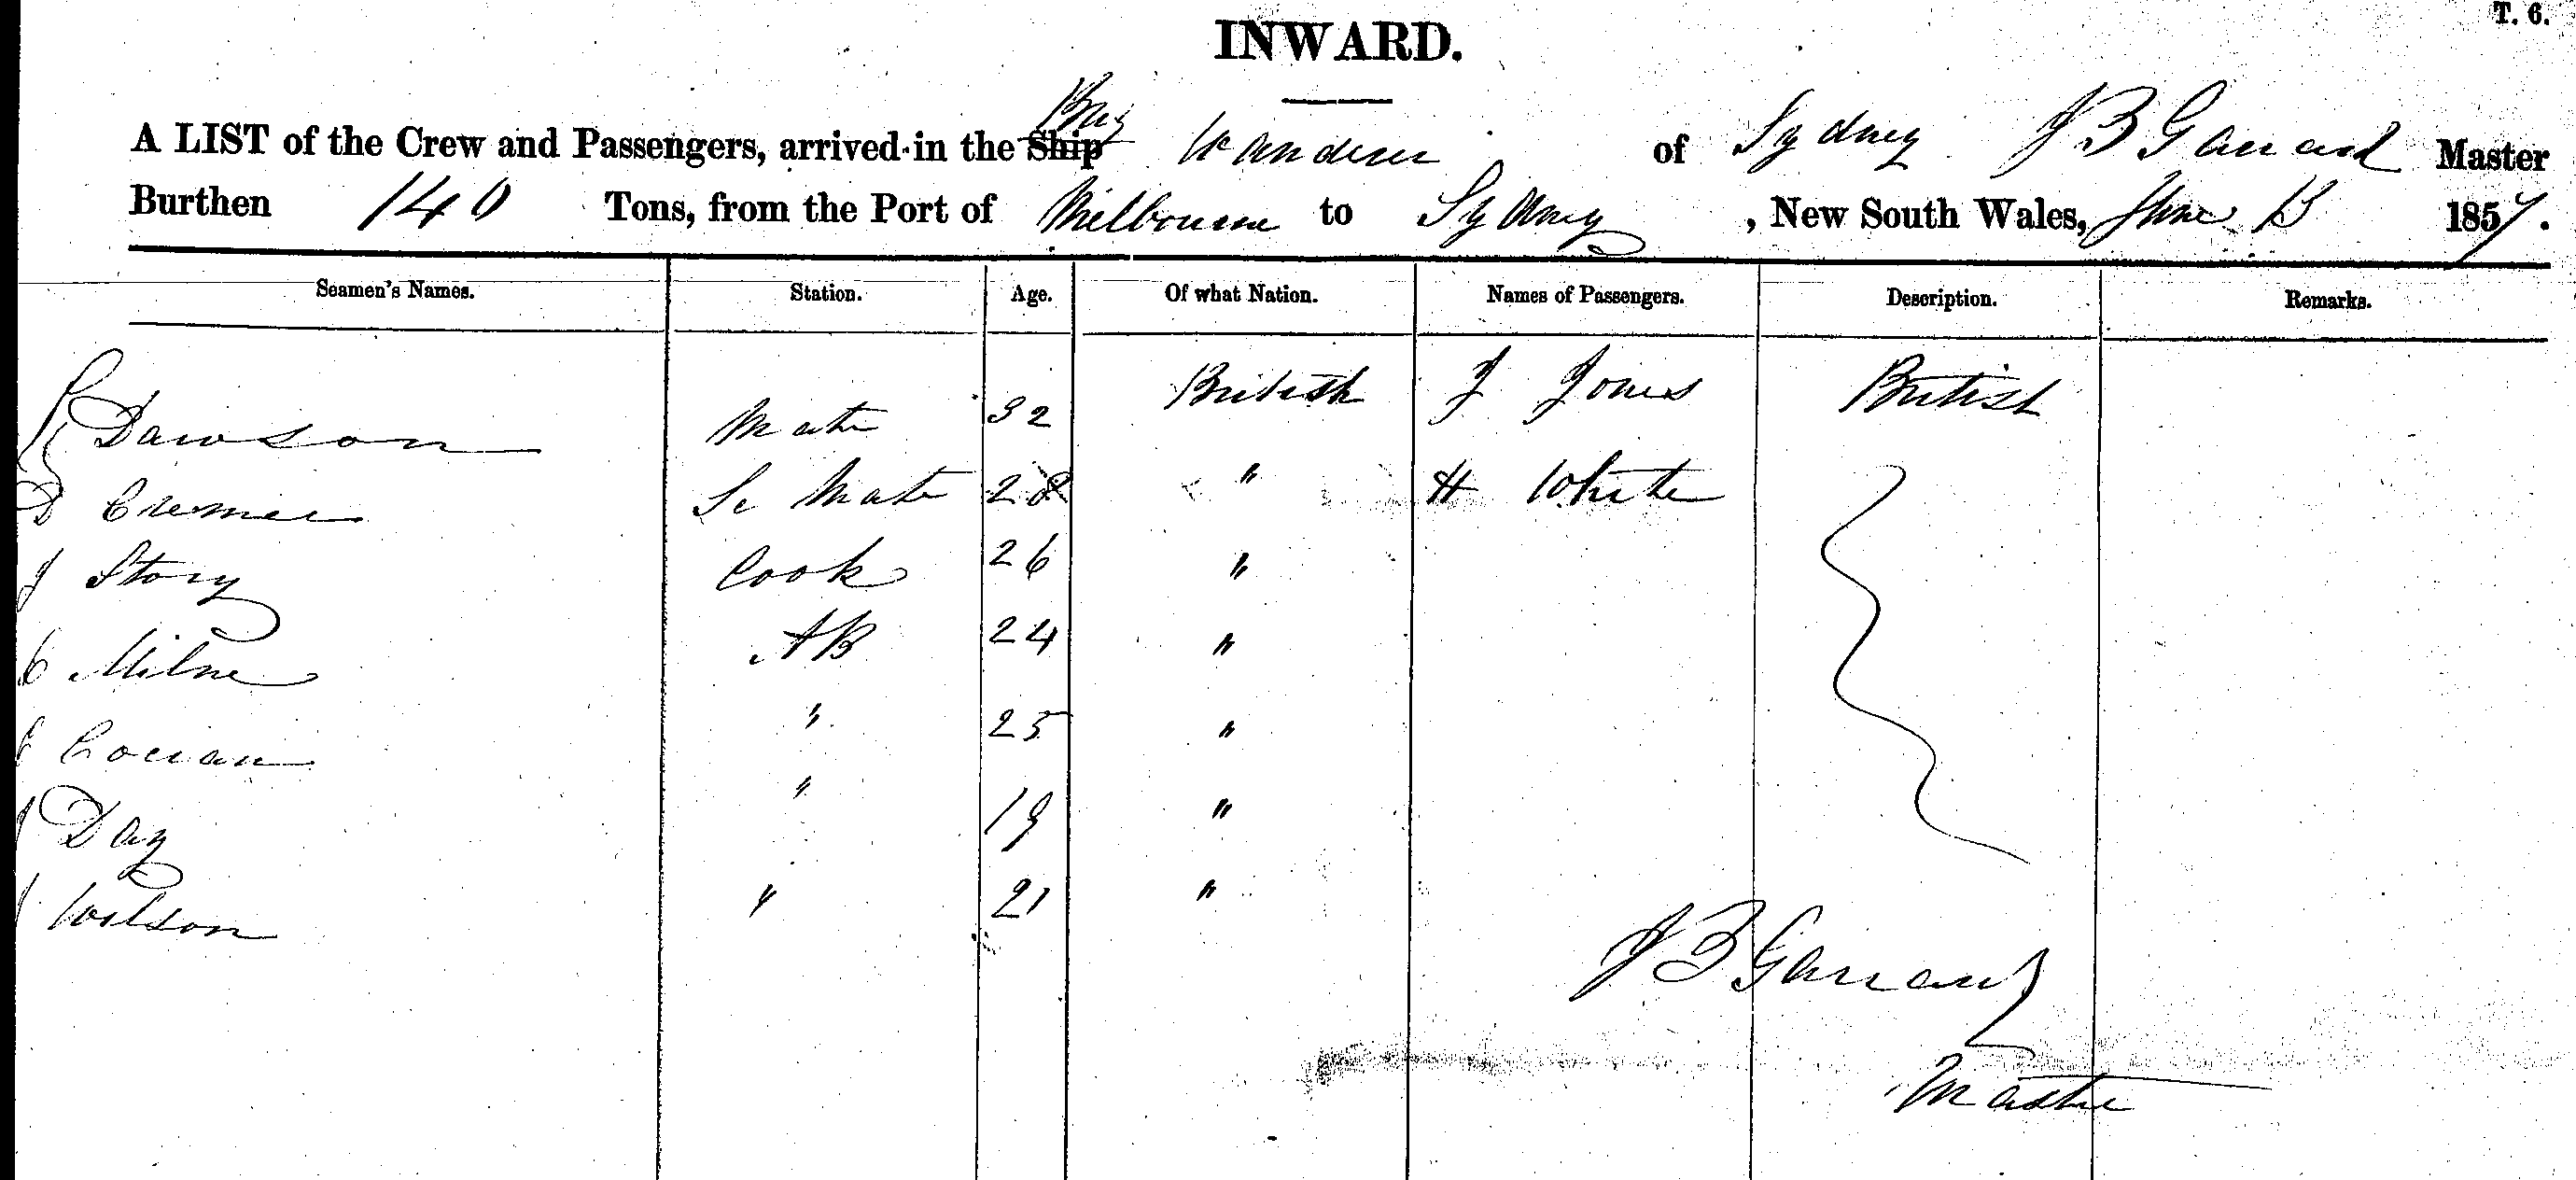 T. 6.
INWARD.
A LIST of the Crew and Passengers, arrived in the Ship Brig Wanderer of Sydney J B Garrard Master
Burthen 140 Tons, from the Port of Melbourne to Sydney, New South Wales, June 13 1857.
Seamen's Names. Station. Age. Of what Nation. Names of Passengers. Description. Remarks.
Dawson Mate 32 British J Jones British
D Cremer Se Mate 28 " H White
J Story Cook 26 "
C Milne AB 24 "
" 25 "
Day " 19 "
Wilson " 21 "
J B Garrard
Master